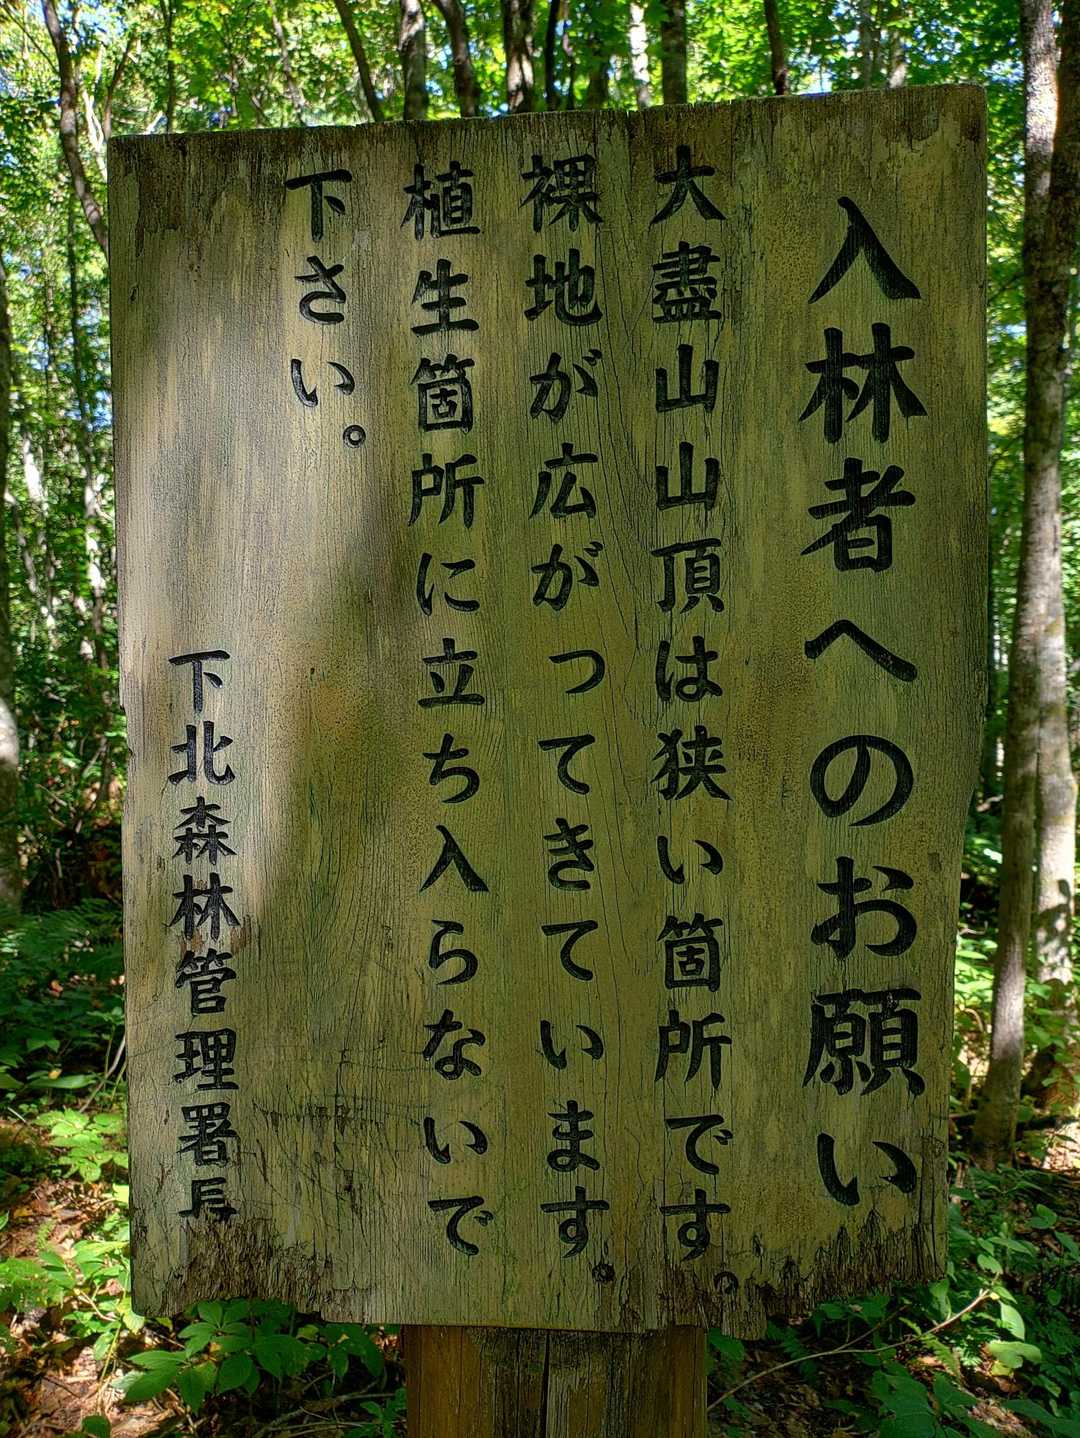 入林者へのお願い
大盡山山頂は狭い箇所です。
裸地が広がってきています。
植生箇所に立ち入らないで
下さい。
下北森林管理署長